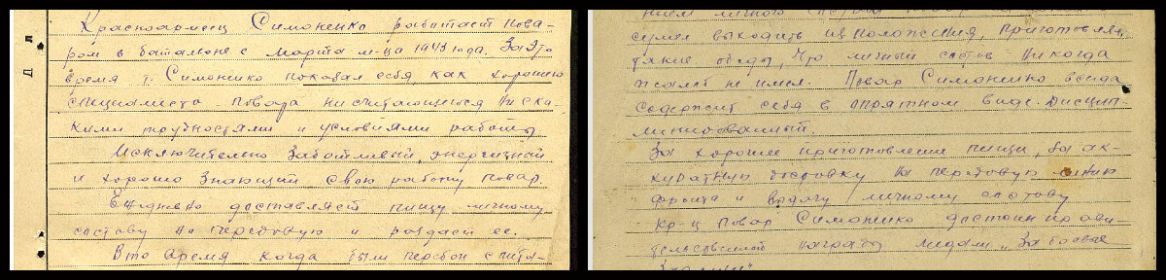 Красноармеец Симоненко работает пова-
ром в баталионе с марта м-ца 1943 года. За это
время т. Симонико показал себя, как хорошего
специалиста повара не считающегося ни ска-
кими трудностями и условиями работы
Исключительно заботливый, энергичный
и хорошо знающий свою работу повар.
Ежедневно доставляет пищу личному
составу на передовую и раздает ее.
В то время когда были перебои с пита-
нием личного
сумел выходить из положения, приготовлял
такие обеды, что личный состав никогда
жалоб не имел. Повар Симонико всегда
содержит себя в опрятном виде. Дисцип-
линированный.
За хорошее приготовление пищи, за ак-
куратную доставку на передовую линию
фронта и выдачу личному составу
кр-ц повар Симонико достоин прави-
тельственной награды медали "За боевые
заслуги"